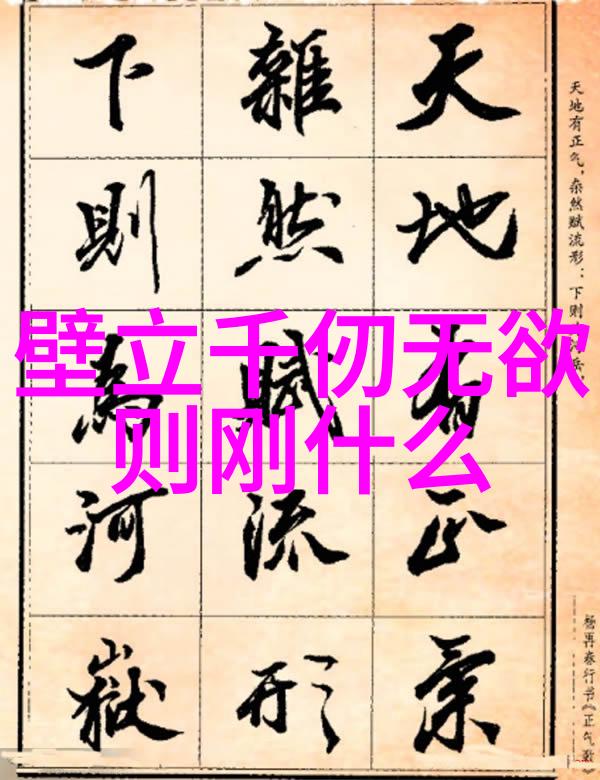 天地有正氣
雜然賦流形
下則為河嶽
壁立千仞无欲
则刚什么
天地有正气，杂然赋流形：下则
杨再春行书《正气歌》